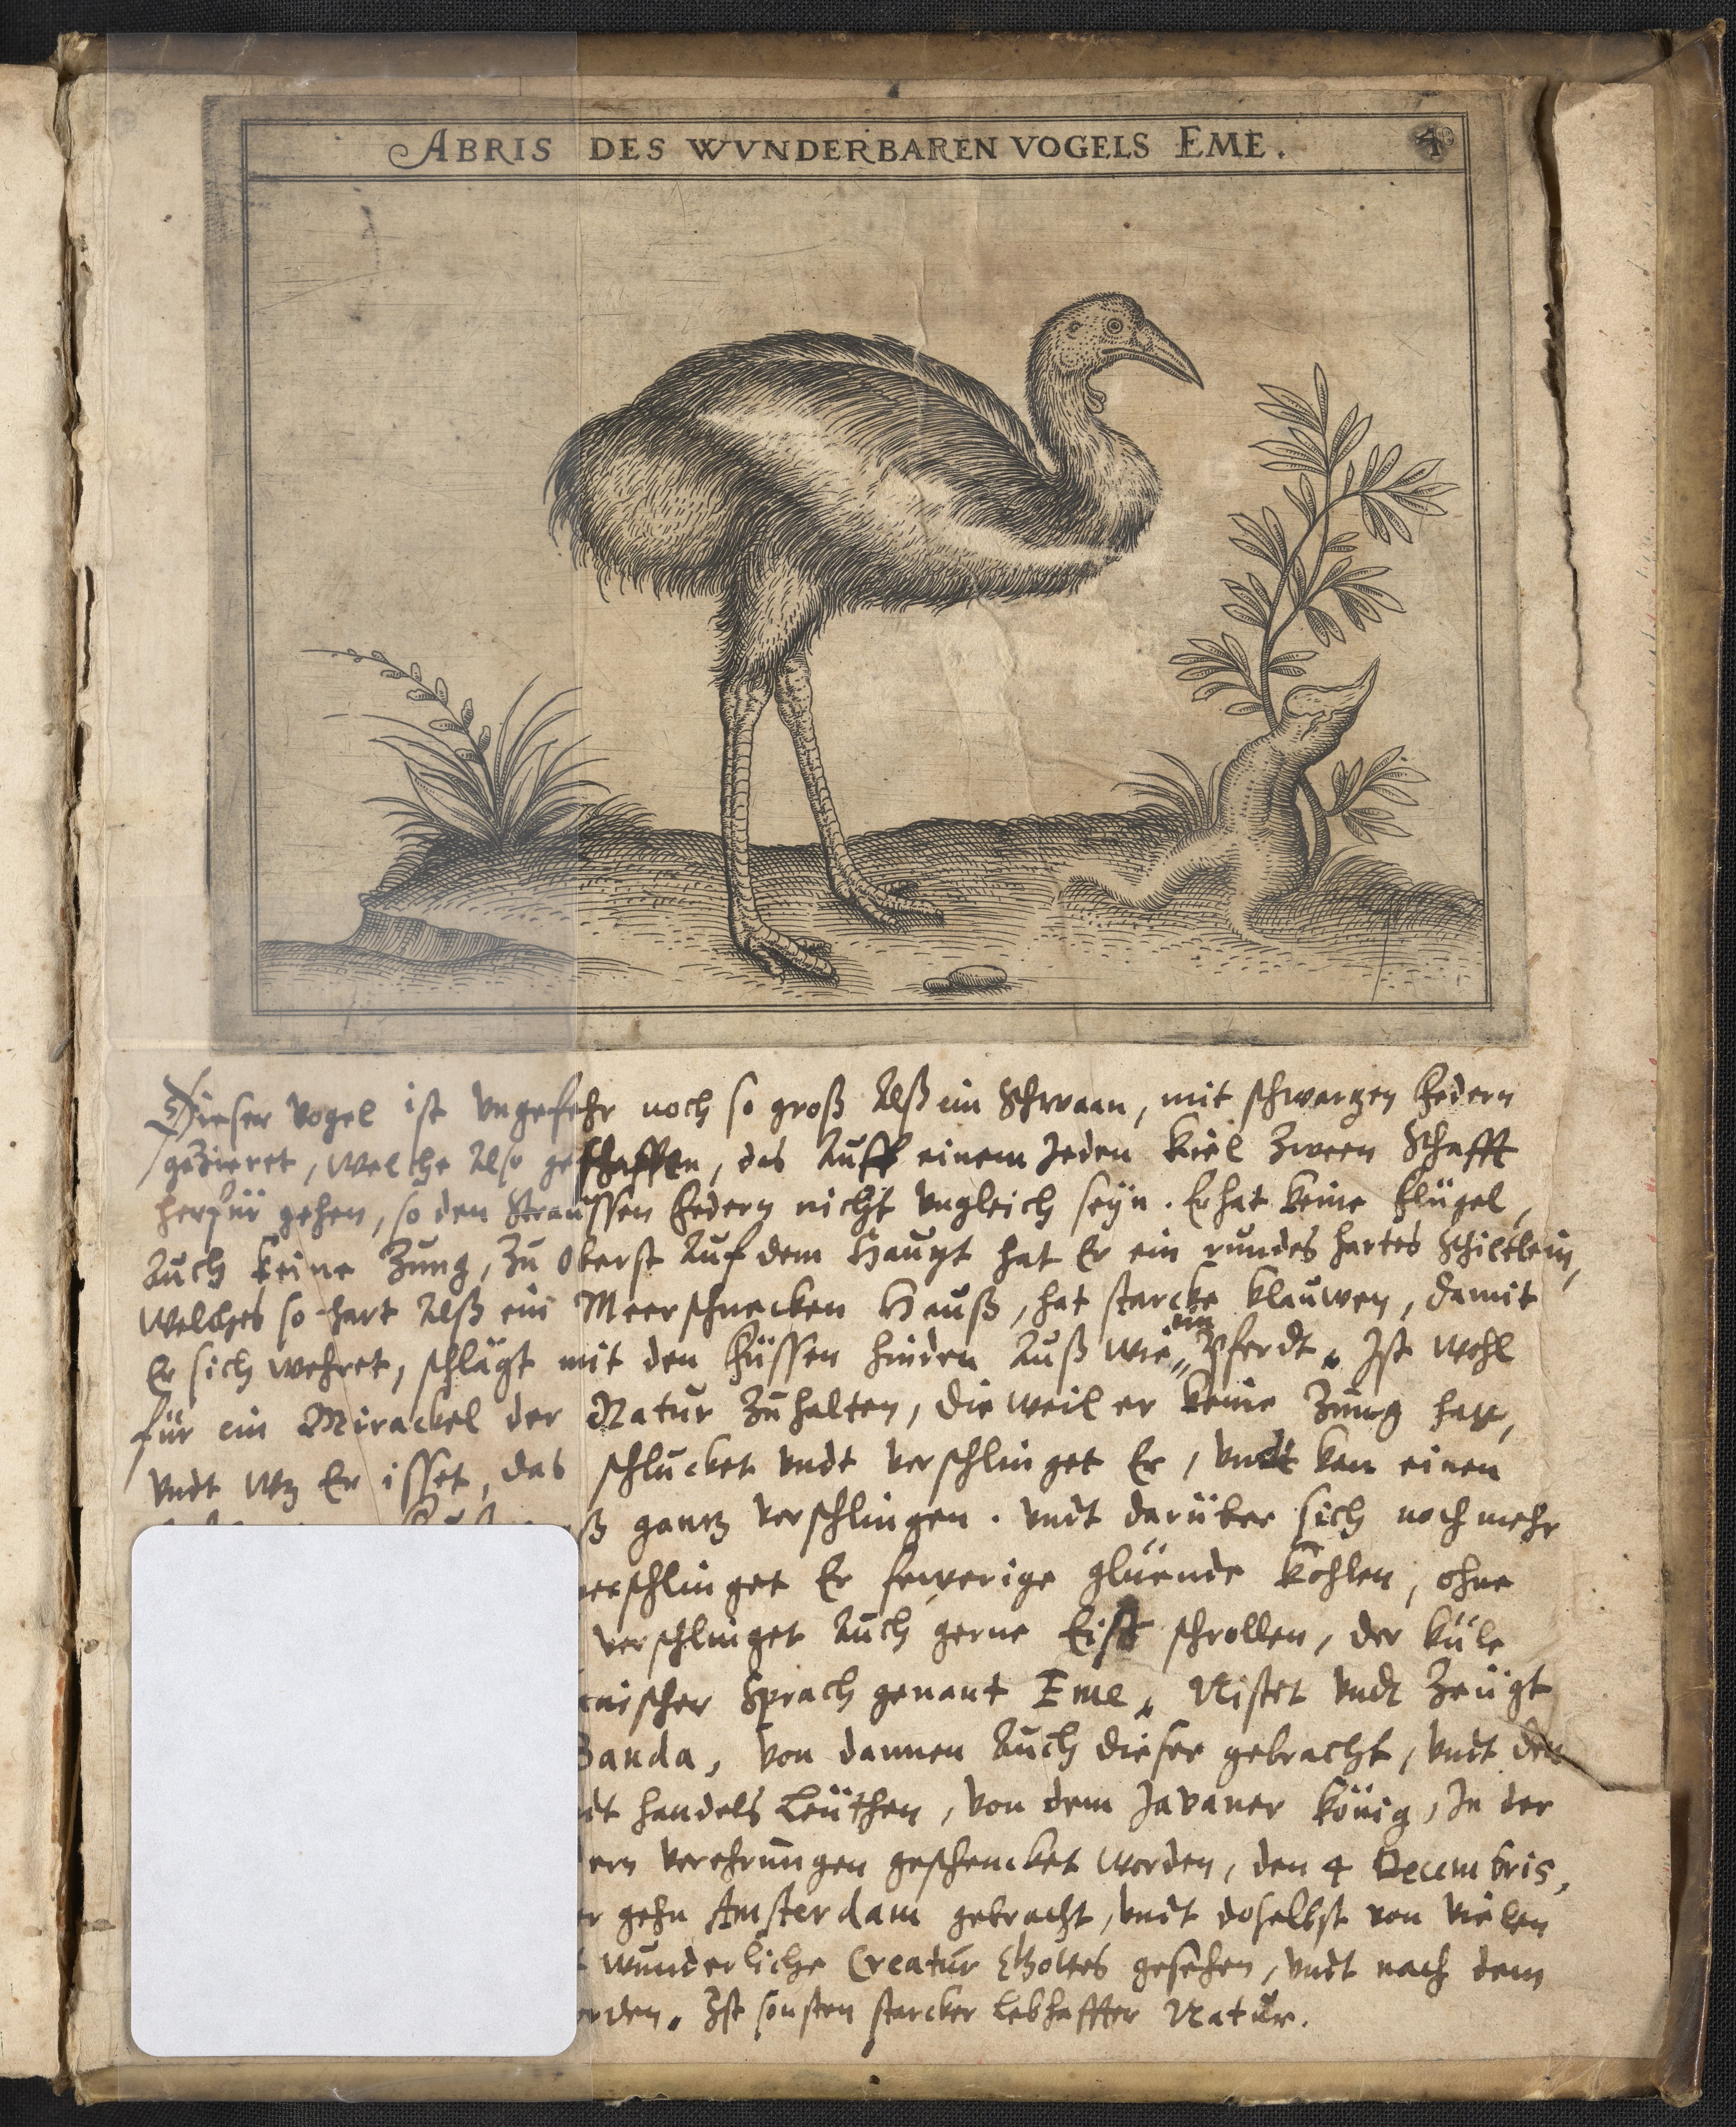 ABRIS DES WVNDERBAREN VOGELS EME.
4
Dieser Vogel ist vngefehr noch so groß Alß ein Schwaan, mit schwartzen Federn
gezieret, welche Also geschaffen, das Auff einem Jeden Kiel zween Schafft
herfür gehen, so den Straussen Federn nicht vngleich seÿn. Er hat keine Flügel,
Auch keine Zung, Zu Oberst Auf dem Haupt hat Er ein rundes hartes Schiltlein,
Welches so hart Alß ein Meerschnecken Hauß, hat starcke klauwen, damit
Er sich wehret, schlägt mit den Füssen hinden Auß wie ein Pferdt. Ist wohl
für ein Mirackel der Natur Zu halten, die weil er keine Zung hatt,
vndt wz Er isset, das schlucket vndt verschlinget Er, vndt kan einen
gantz verschlingen. vndt darüber sich noch mehr
verschlinget Er fewerige glüende kohlen, ohne
verschlinget Auch gerne Eiß schrollen, der küle
Sprach genant Eme. Nistet vndt Zeügt
Banda, von dannen Auch dieser gebracht, vndt den
handels Leüthen, von dem Javaner König, In der
verehrungen geschencket worden, den 4 Decembris,
gehn Amsterdam gebracht, vndt doselbst von vielen
wunderliche Creatur Gottes gesehen, vndt nach dem
Ist sonsten starcker lebhaffter Natur.